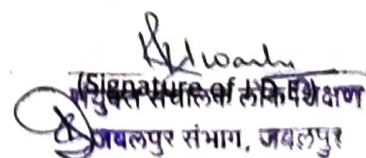 (Signature of J.D.E)
संयुक्त संचालक लोक शिक्षण
जबलपुर संभाग, जबलपुर